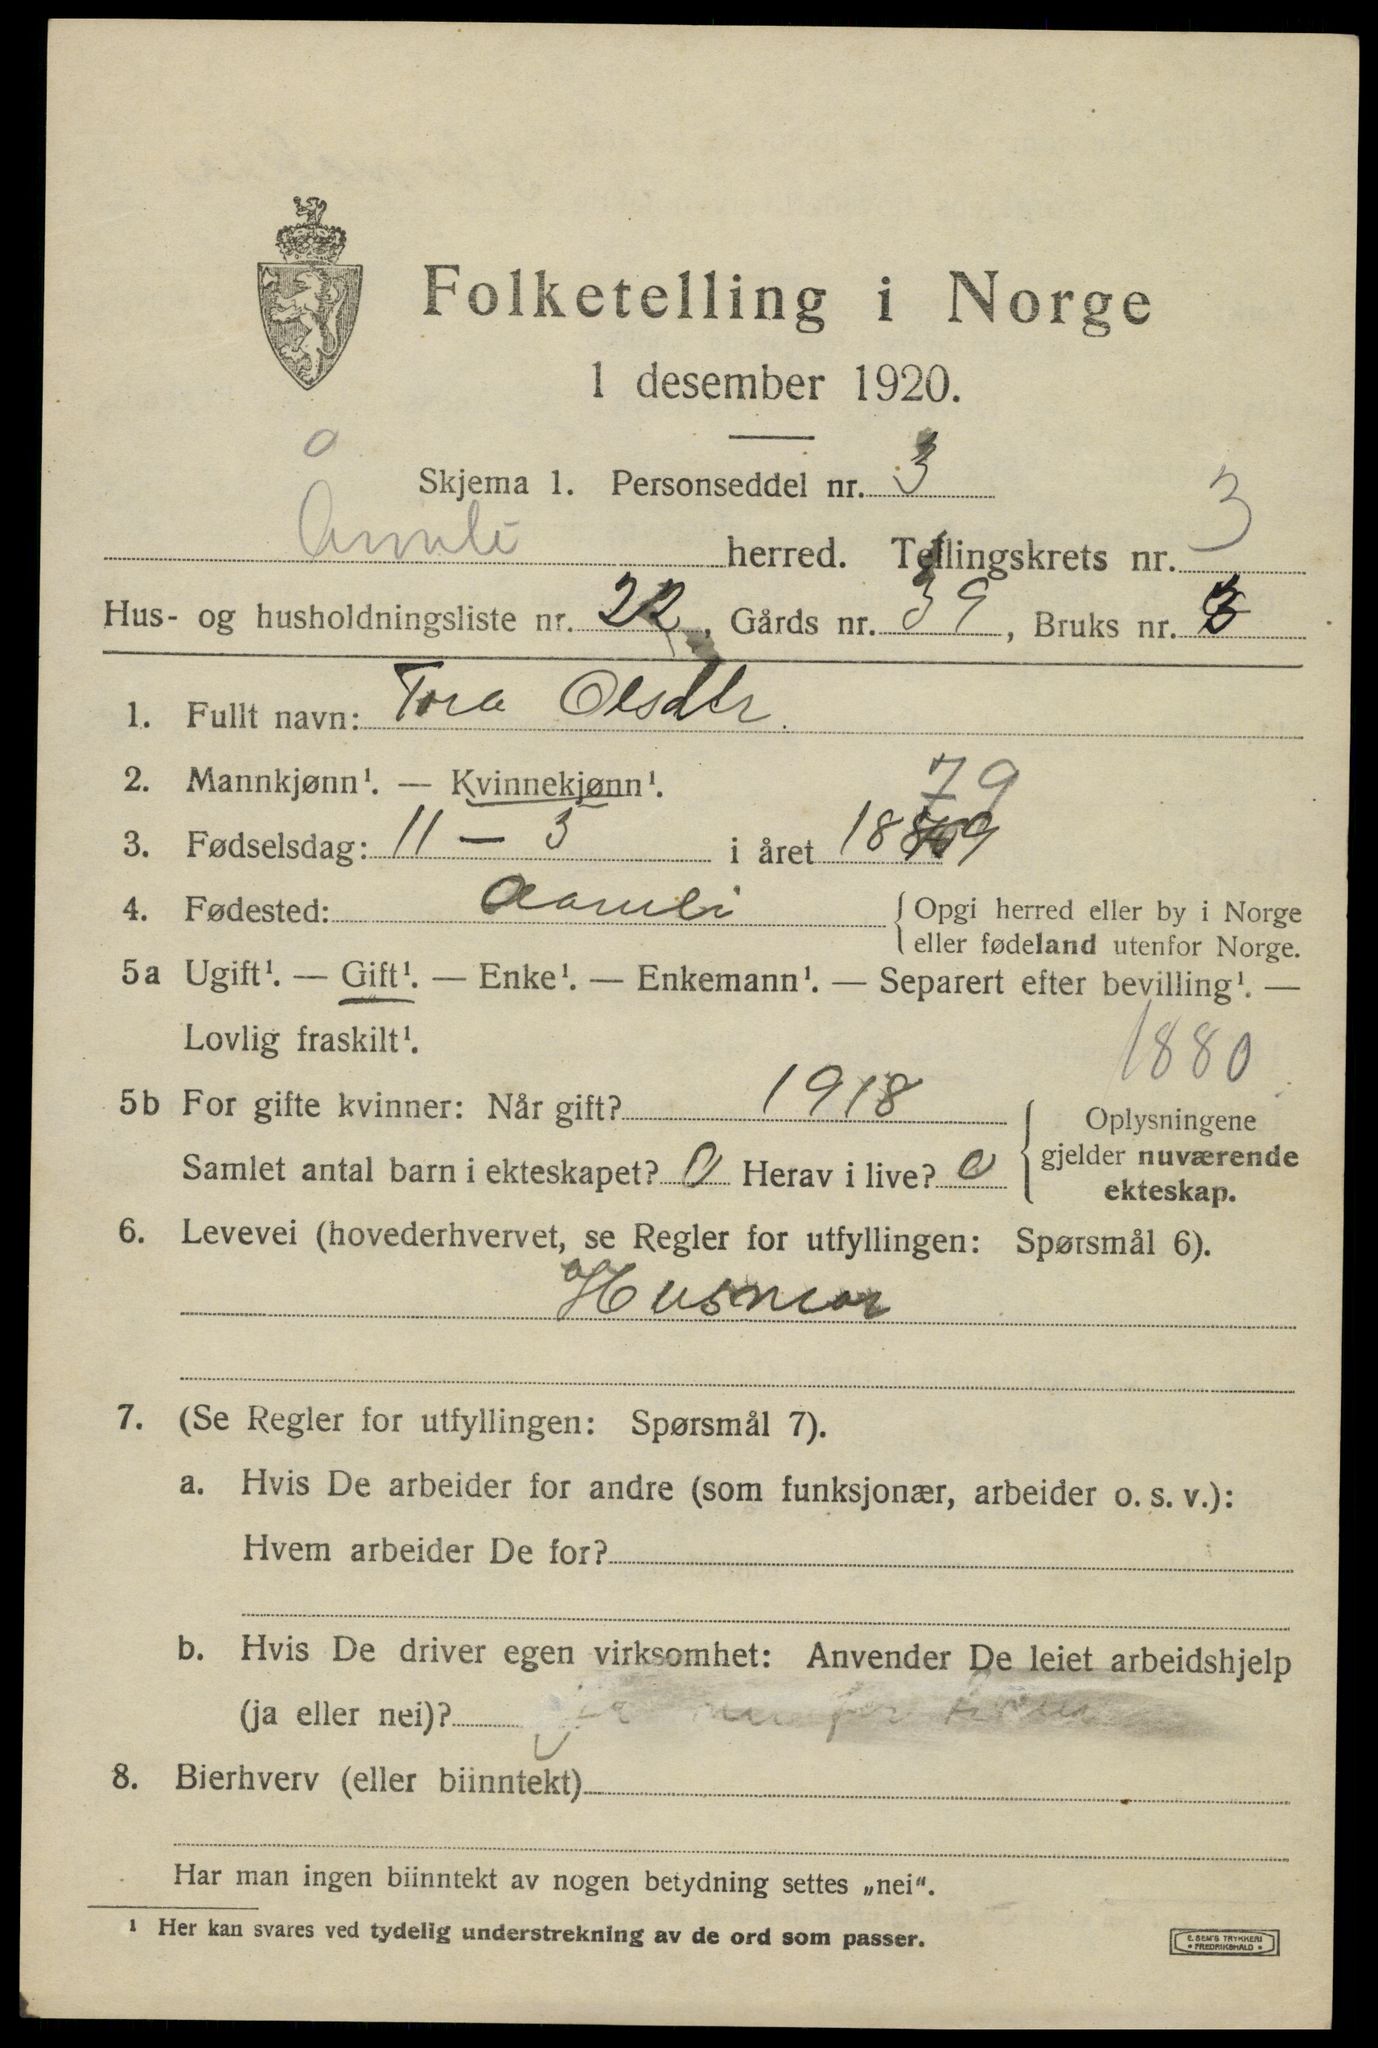 Folketelling i Norge
1 desember 1920.
0
Skjema 1. Personseddel nr. 3
Åmli herred. Tellingskrets nr. 3
Hus- og husholdningsliste nr. 22, Gårds nr. 39, Bruks nr. 3
1. Fullt navn: Tora Olsdtr.
2. Mannkjønn¹. — Kvinnekjønn¹.
79
3. Fødselsdag: 11 — 3 i året 18
4. Fødested: Aamli { Opgi herred eller by i Norge
eller fødeland utenfor Norge.
5a Ugift¹. — Gift¹. — Enke¹. — Enkemann¹. — Separert efter bevilling¹. —
Lovlig fraskilt¹.
1880
5b For gifte kvinner: Når gift? 1918
Samlet antal barn i ekteskapet? 0 Herav i live? 0
Oplysningene
gjelder nuværende
ekteskap.
6. Levevei (hovederhvervet, se Regler for utfyllingen: Spørsmål 6).
Husmor
7. (Se Regler for utfyllingen: Spørsmål 7).
a. Hvis De arbeider for andre (som funksjonær, arbeider o. s. v.):
Hvem arbeider De for?
b. Hvis De driver egen virksomhet: Anvender De leiet arbeidshjelp
(ja eller nei)? ja
8. Bierhverv (eller biinntekt)
Har man ingen biinntekt av nogen betydning settes „nei“.
¹ Her kan svares ved tydelig understrekning av de ord som passer.
E. SEM'S TRYKKERI
• FREDRIKSHALD •